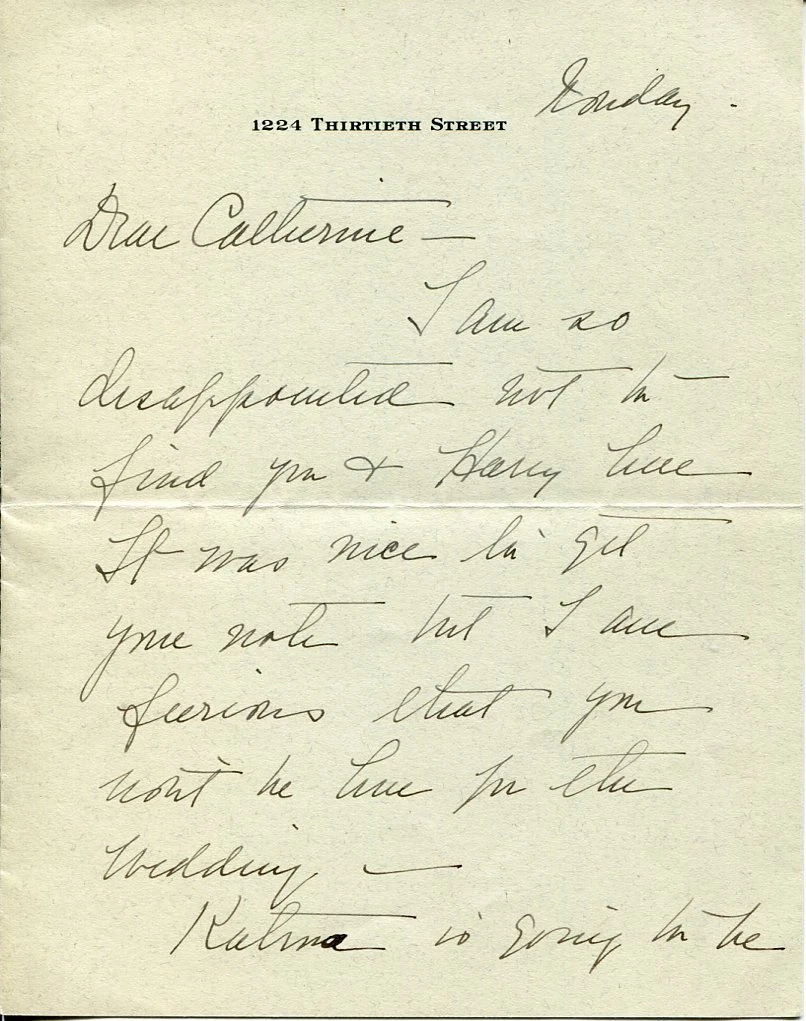 Monday.
1224 THIRTIETH STREET
Dear Catherine —
I am so
disappointed not to
find you & Harry here
It was nice to get
your note but I am
furious that you
won't be here for the
wedding —
Katrina is going to be